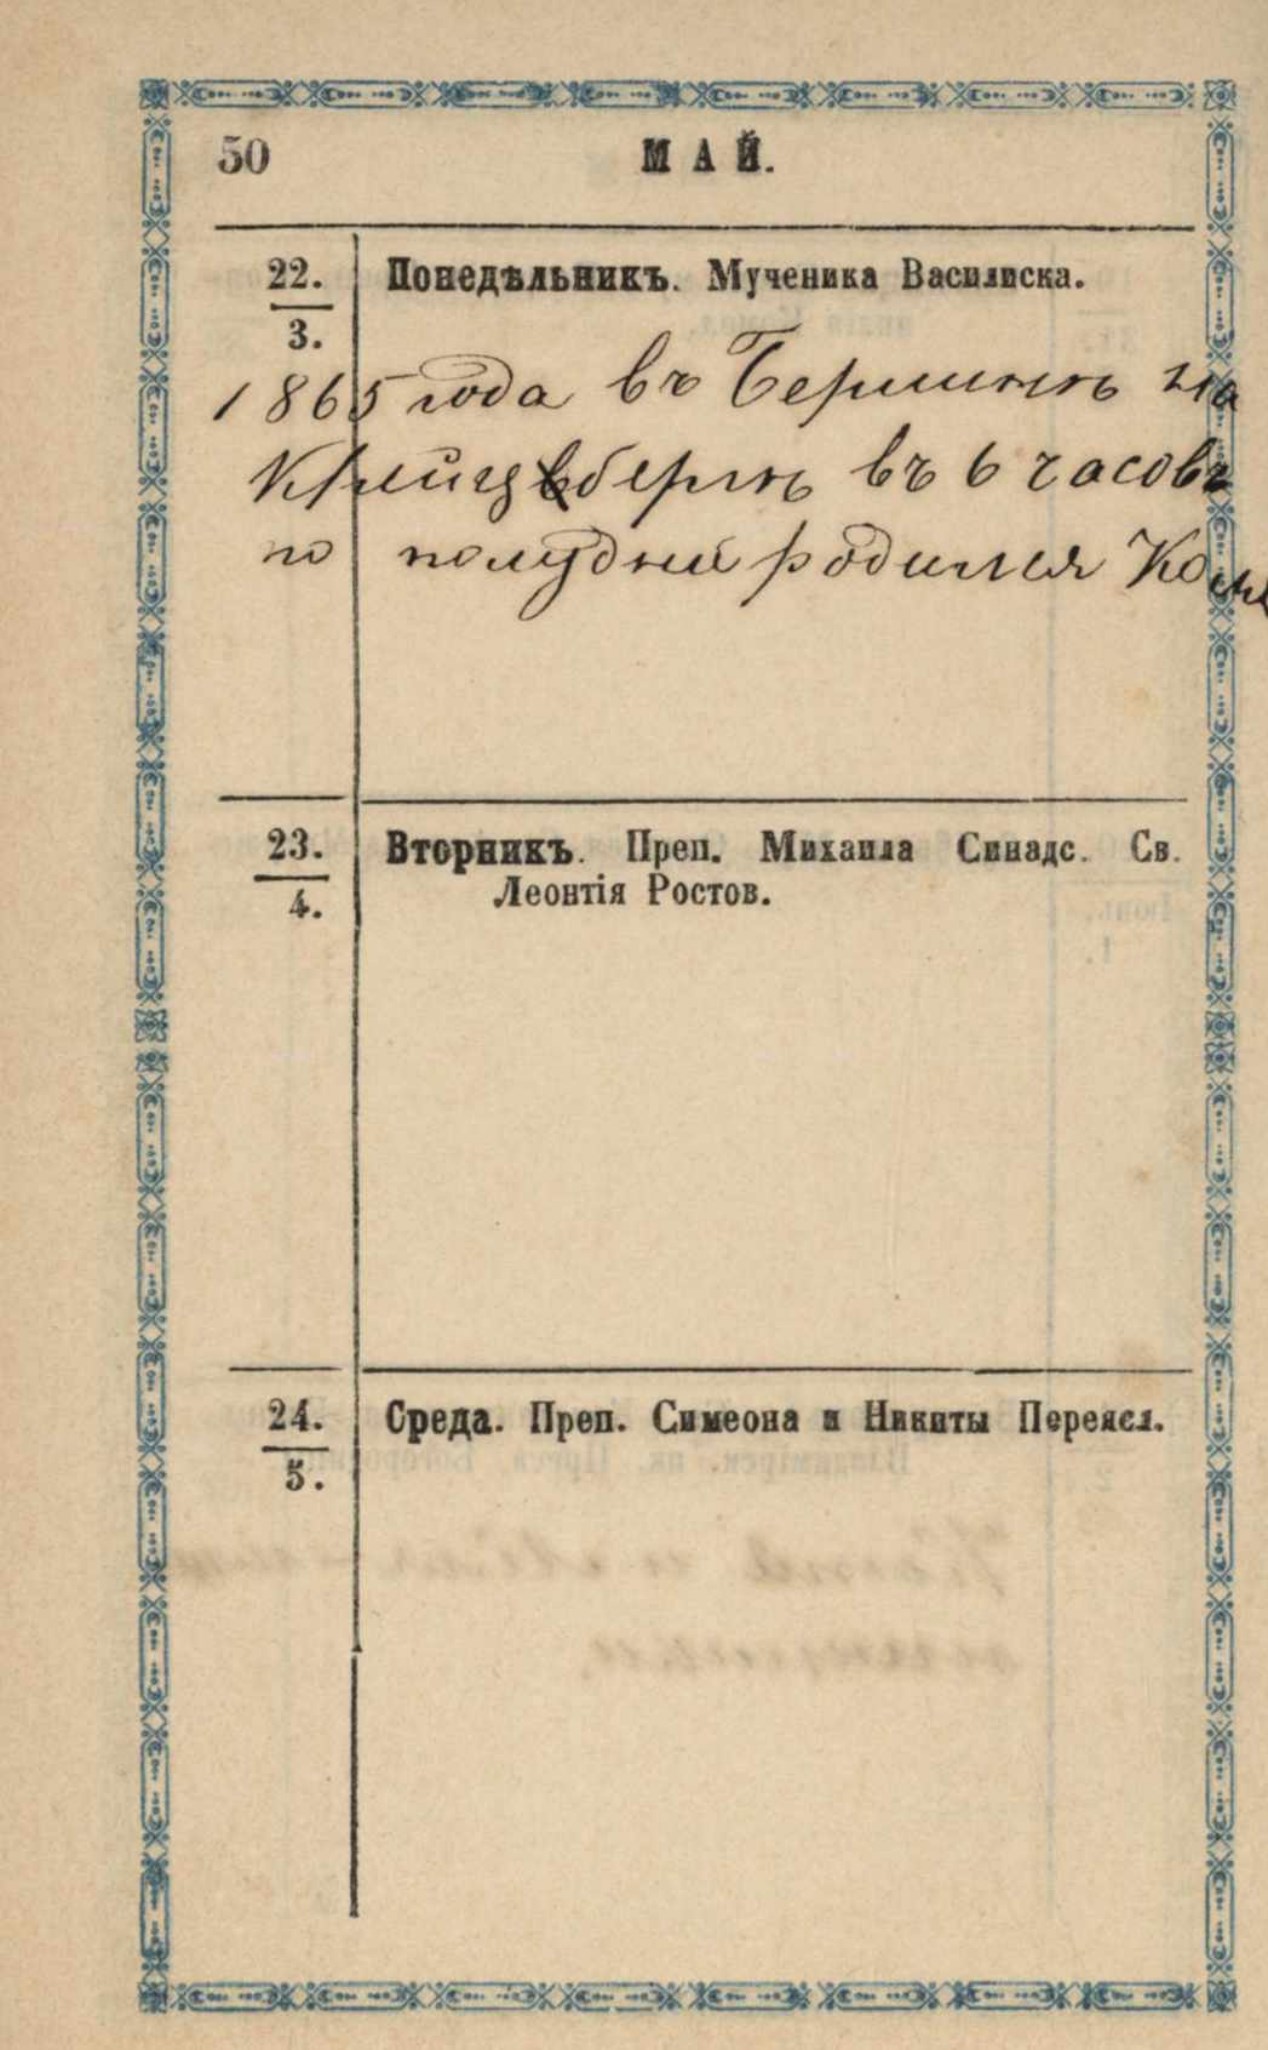 50
МАЙ.
22.
3.
Понедѣльникъ. Мученика Василиска.
1865 года въ Берлинѣ на
Крейцбергѣ въ 6 часовъ
по полудни родился Коля
23.
4.
Вторникъ. Преп. Михаила Синадс. Св.
Леонтія Ростов.
24.
5.
Среда. Преп. Симеона и Никиты Переясл.